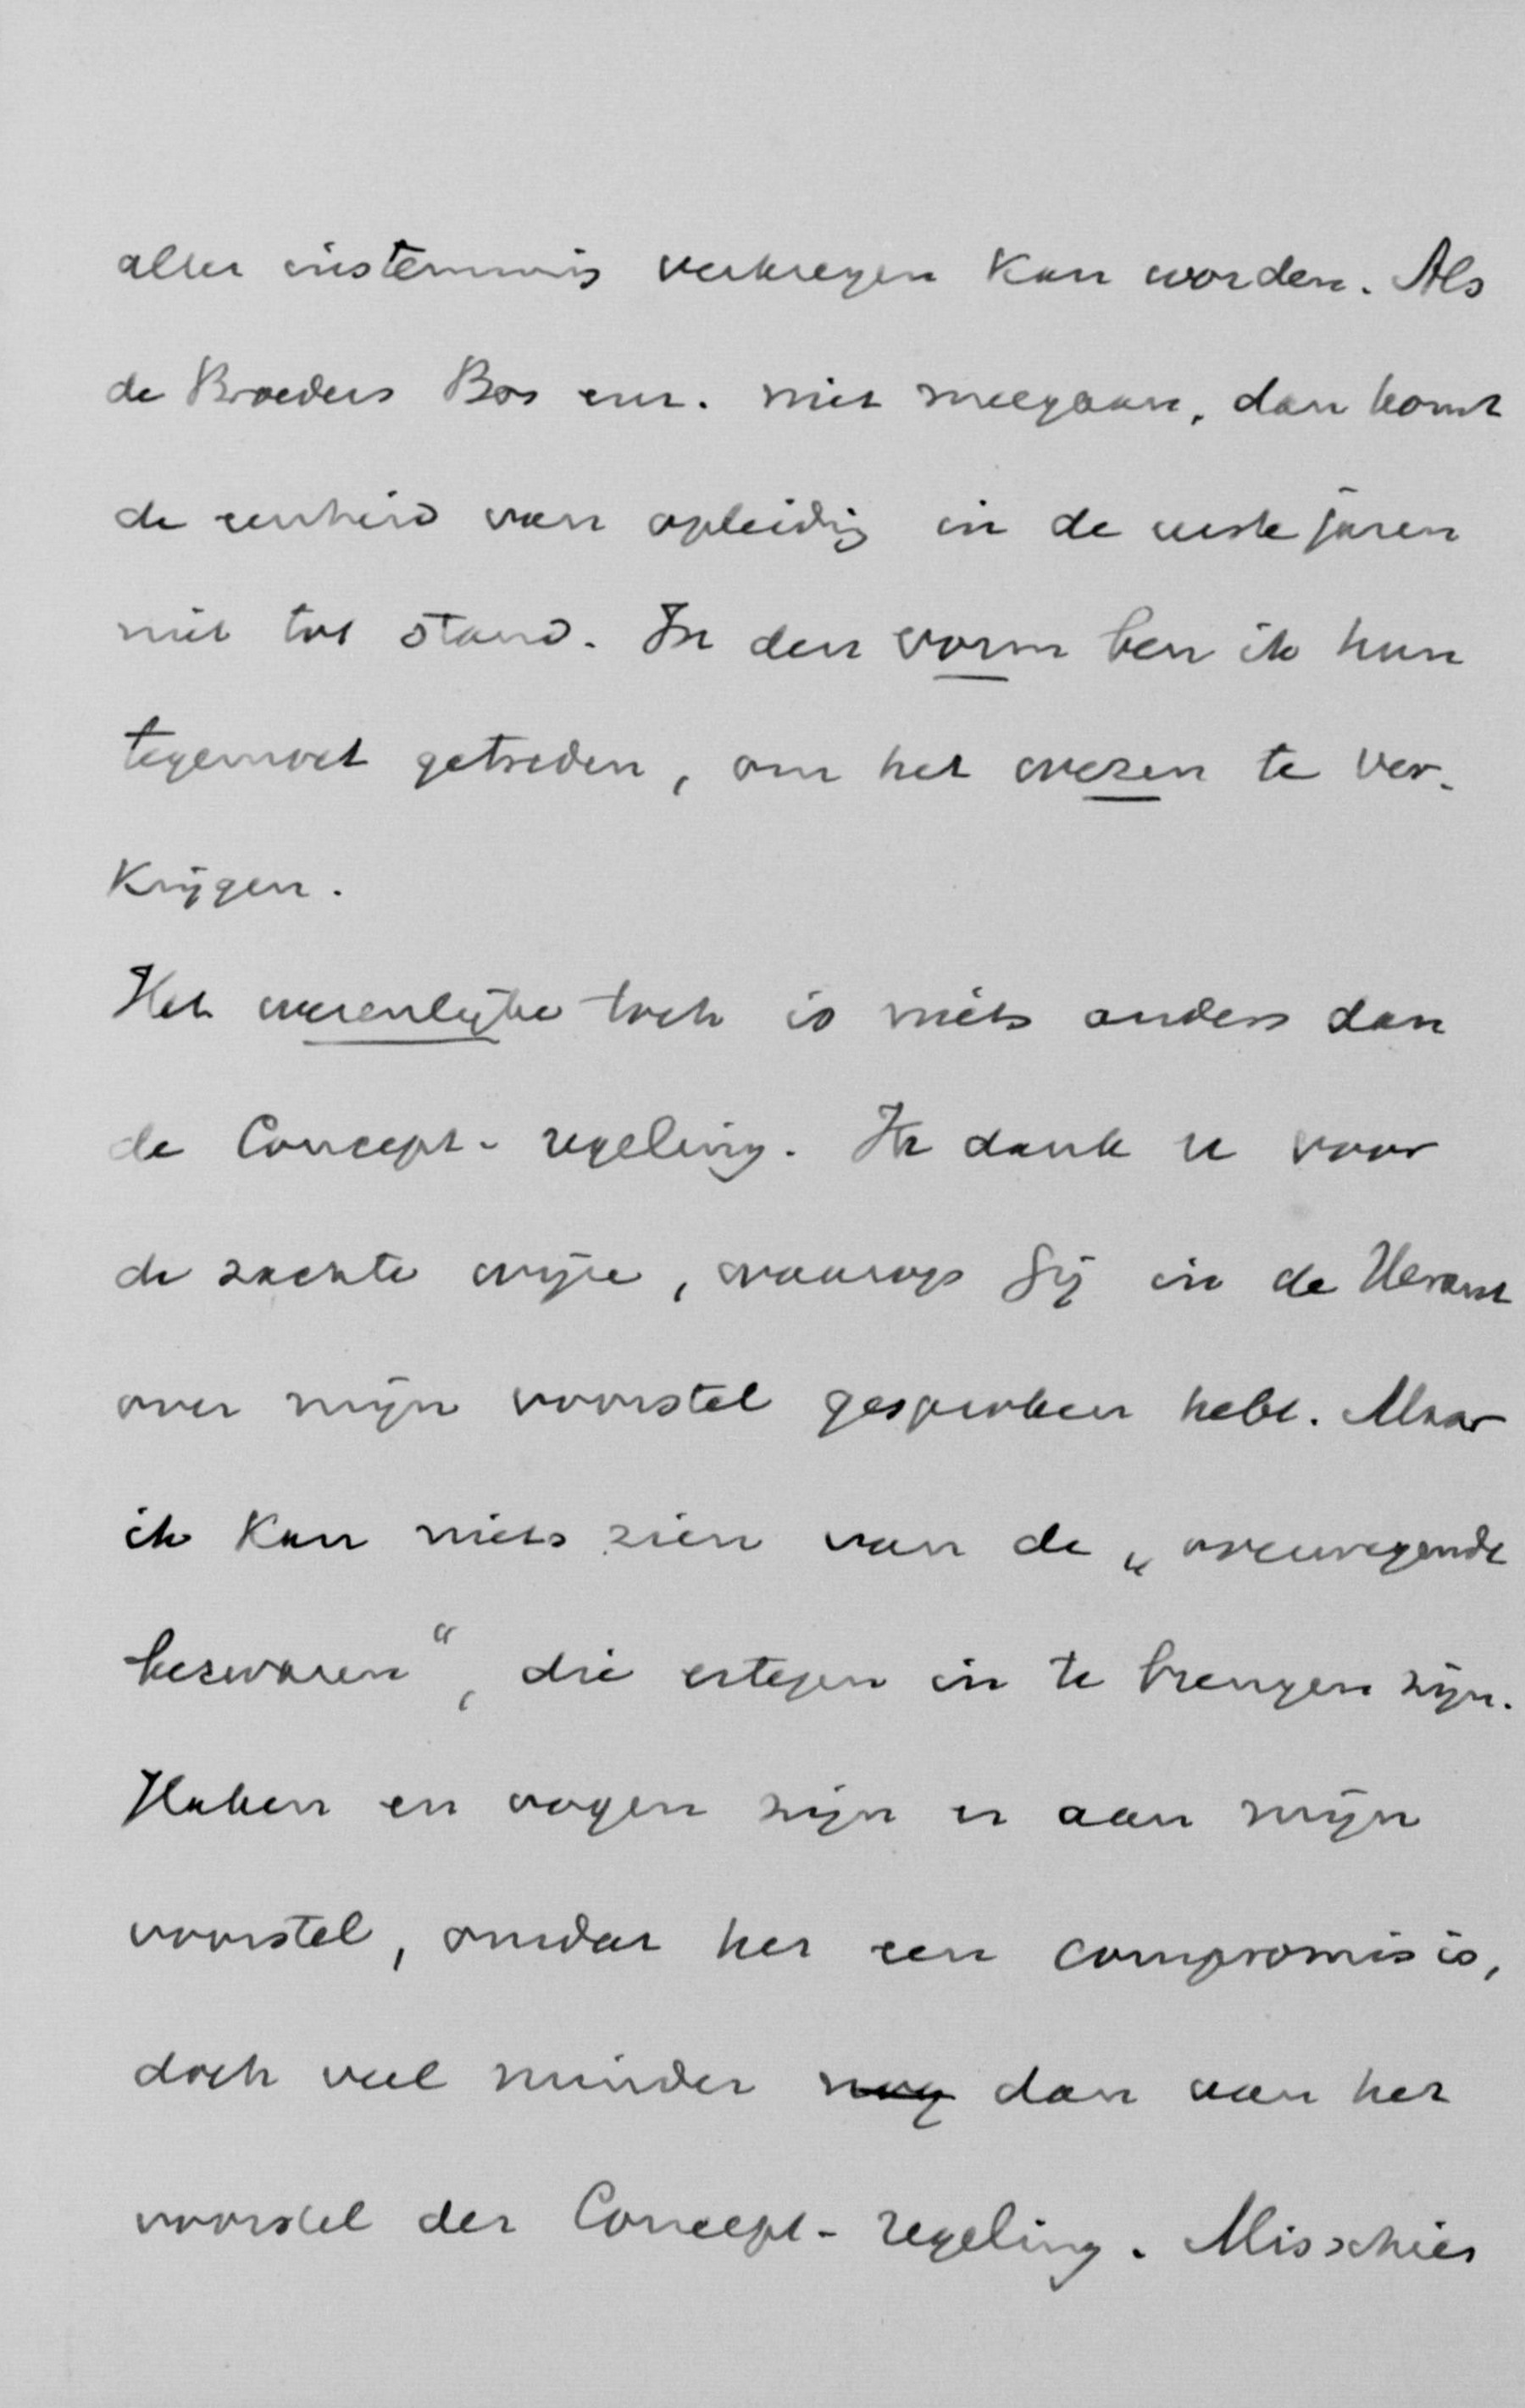 aller instemming verkregen kan worden. Als
de Broeders Bos enz. niet meegaan, dan komt
de eenheid van opleidig in de eerste jaren
niet tot stand. In den vorm ben ik hun
tegemoet getreden, om het wezen te ver-
krijgen.
Het wezenlijke toch is niets anders dan
de Concept-regeling. Ik dank u voor
de zachte wijze, waarop Gij in de Heraut
over mijn voorstel gesproken hebt. Maar
ik kan niets zien van de „overwegende
bezwaren“, die ertegen in te brengen zijn.
Haken en oogen zijn er aan mijn
voorstel, omdat het een compromis is,
doch veel minder nog dan aan het
voorstel der Concept-regeling. Misschien